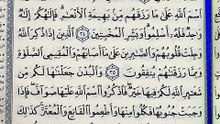 ٱسْمَ ٱللَّهِ عَلَىٰ مَا رَزَقَهُم مِّنۢ بَهِيمَةِ ٱلْأَنْعَٰمِ ۗ فَإِلَٰهُكُمْ إِلَٰهٌ
وَٰحِدٌ فَلَهُۥٓ أَسْلِمُوا۟ ۗ وَبَشِّرِ ٱلْمُخْبِتِينَ ٣٤ ٱلَّذِينَ إِذَا ذُكِرَ ٱللَّهُ
وَجِلَتْ قُلُوبُهُمْ وَٱلصَّٰبِرِينَ عَلَىٰ مَآ أَصَابَهُمْ وَٱلْمُقِيمِى ٱلصَّلَوٰةِ
وَمِمَّا رَزَقْنَٰهُمْ يُنفِقُونَ ٣٥ وَٱلْبُدْنَ جَعَلْنَٰهَا لَكُم مِّن
شَعَٰٓئِرِ ٱللَّهِ لَكُمْ فِيهَا خَيْرٌ ۖ فَٱذْكُرُوا۟ ٱسْمَ ٱللَّهِ عَلَيْهَا صَوَآفَّ ۖ فَإِذَا
وَجَبَتْ جُنُوبُهَا فَكُلُوا۟ مِنْهَا وَأَطْعِمُوا۟ ٱلْقَانِعَ وَٱلْمُعْتَرَّ ۚ كَذَٰلِكَ